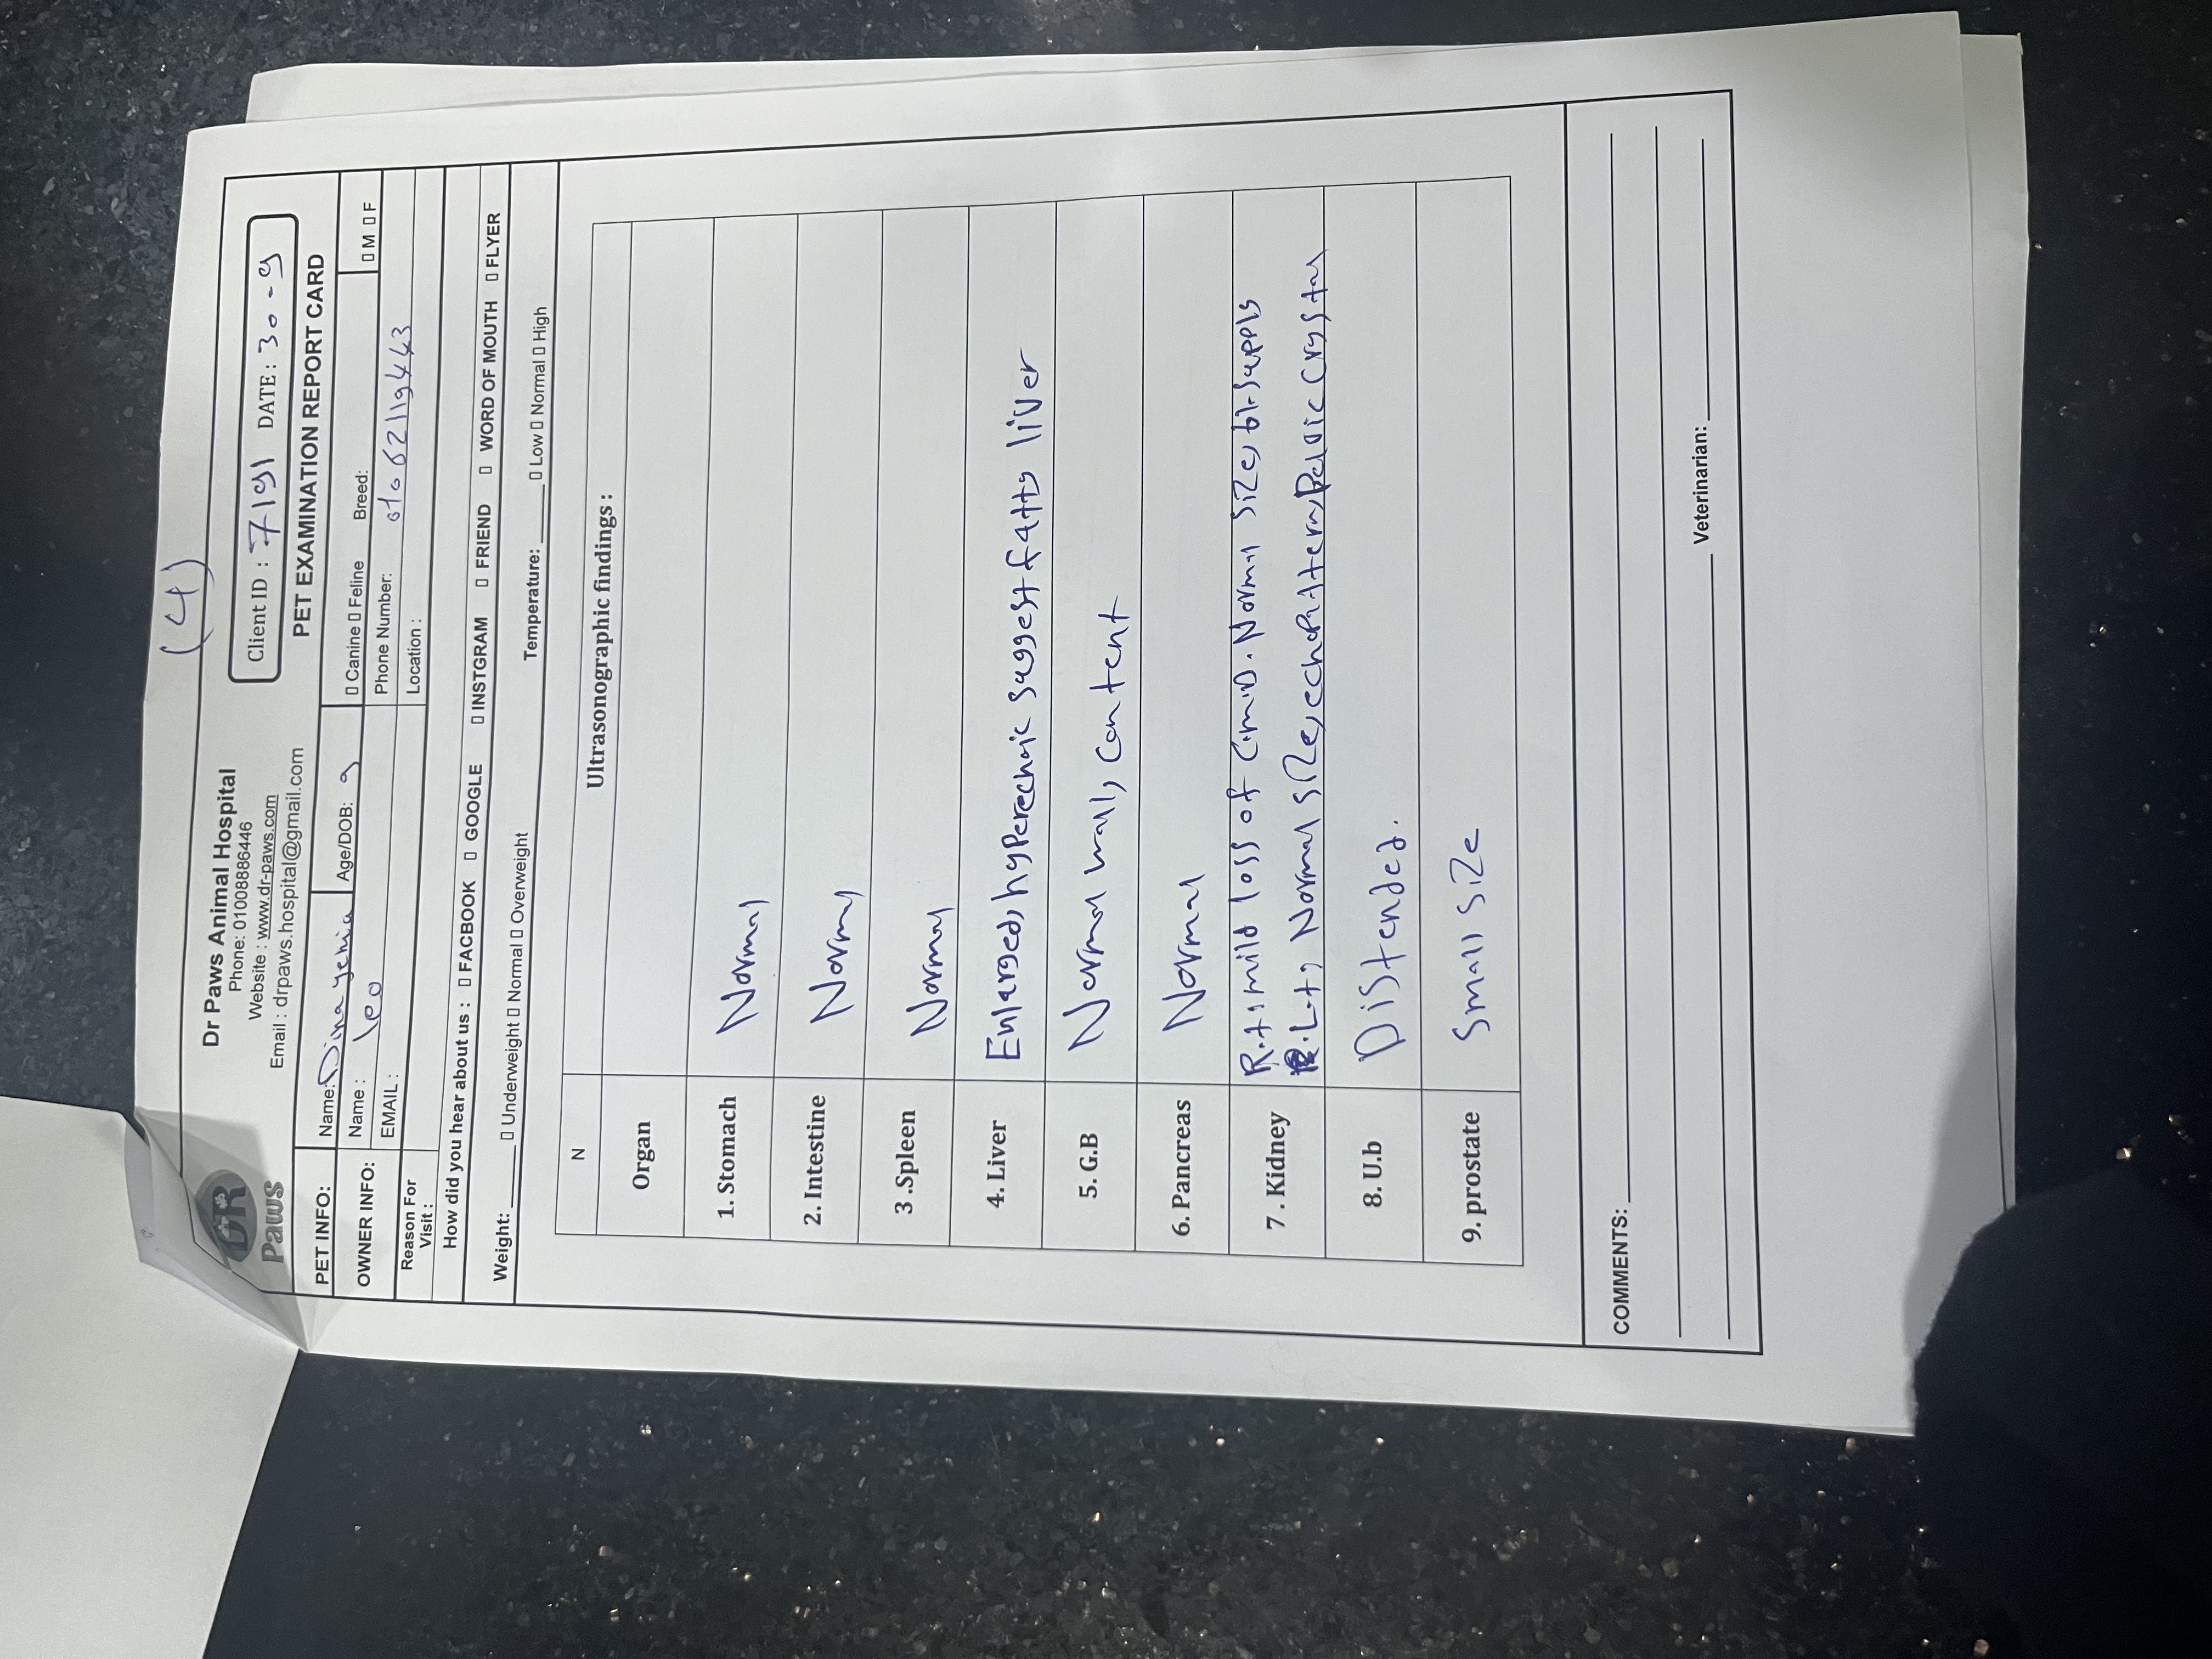 (4)
DR
Paws
Dr Paws Animal Hospital
Phone: 01008886446
Website : www.dr-paws.com
Email : drpaws.hospital@gmail.com
Client ID : 7191 DATE: 30-9
PET EXAMINATION REPORT CARD
PET INFO: Name: Age/DOB: 9 ▯ Canine ▯ Feline Breed: ▯ M ▯ F
OWNER INFO: Name : leo Phone Number: 01062119443
EMAIL : Location :
Reason For
Visit :
How did you hear about us : ▯ FACBOOK ▯ GOOGLE ▯ INSTGRAM ▯ FRIEND ▯ WORD OF MOUTH ▯ FLYER
Weight: ______ ▯ Underweight ▯ Normal ▯ Overweight Temperature: ______ ▯ Low ▯ Normal ▯ High
N Ultrasonographic findings :
Organ
1. Stomach Normal
2. Intestine Normal
3 .Spleen Normal
4. Liver Enlarged, hyperechnic suggest fatty liver
5. G.B Normal wall, content
6. Pancreas Normal
7. Kidney R.t, mild loss of C.M.D. Normal size, bl. supply
L.t, Normal size, echopattern, Pelvic crystal
8. U.b Distended.
9. prostate Small size
COMMENTS:
Veterinarian: